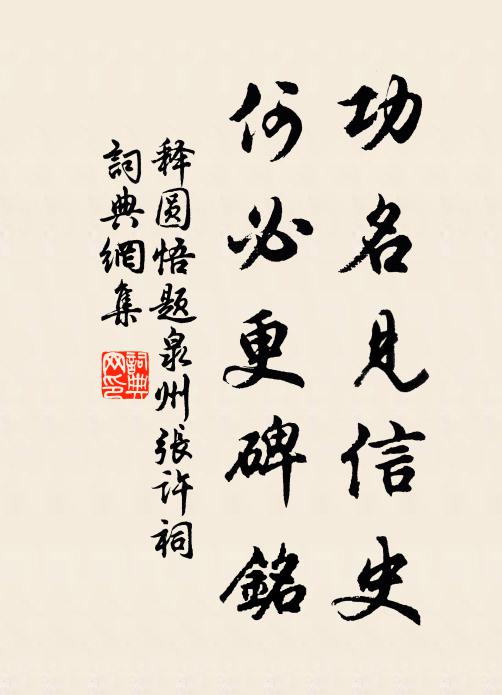 功名見信史
何必更碑銘
释圆悟题泉州張许祠
詞典網集
詞典网印